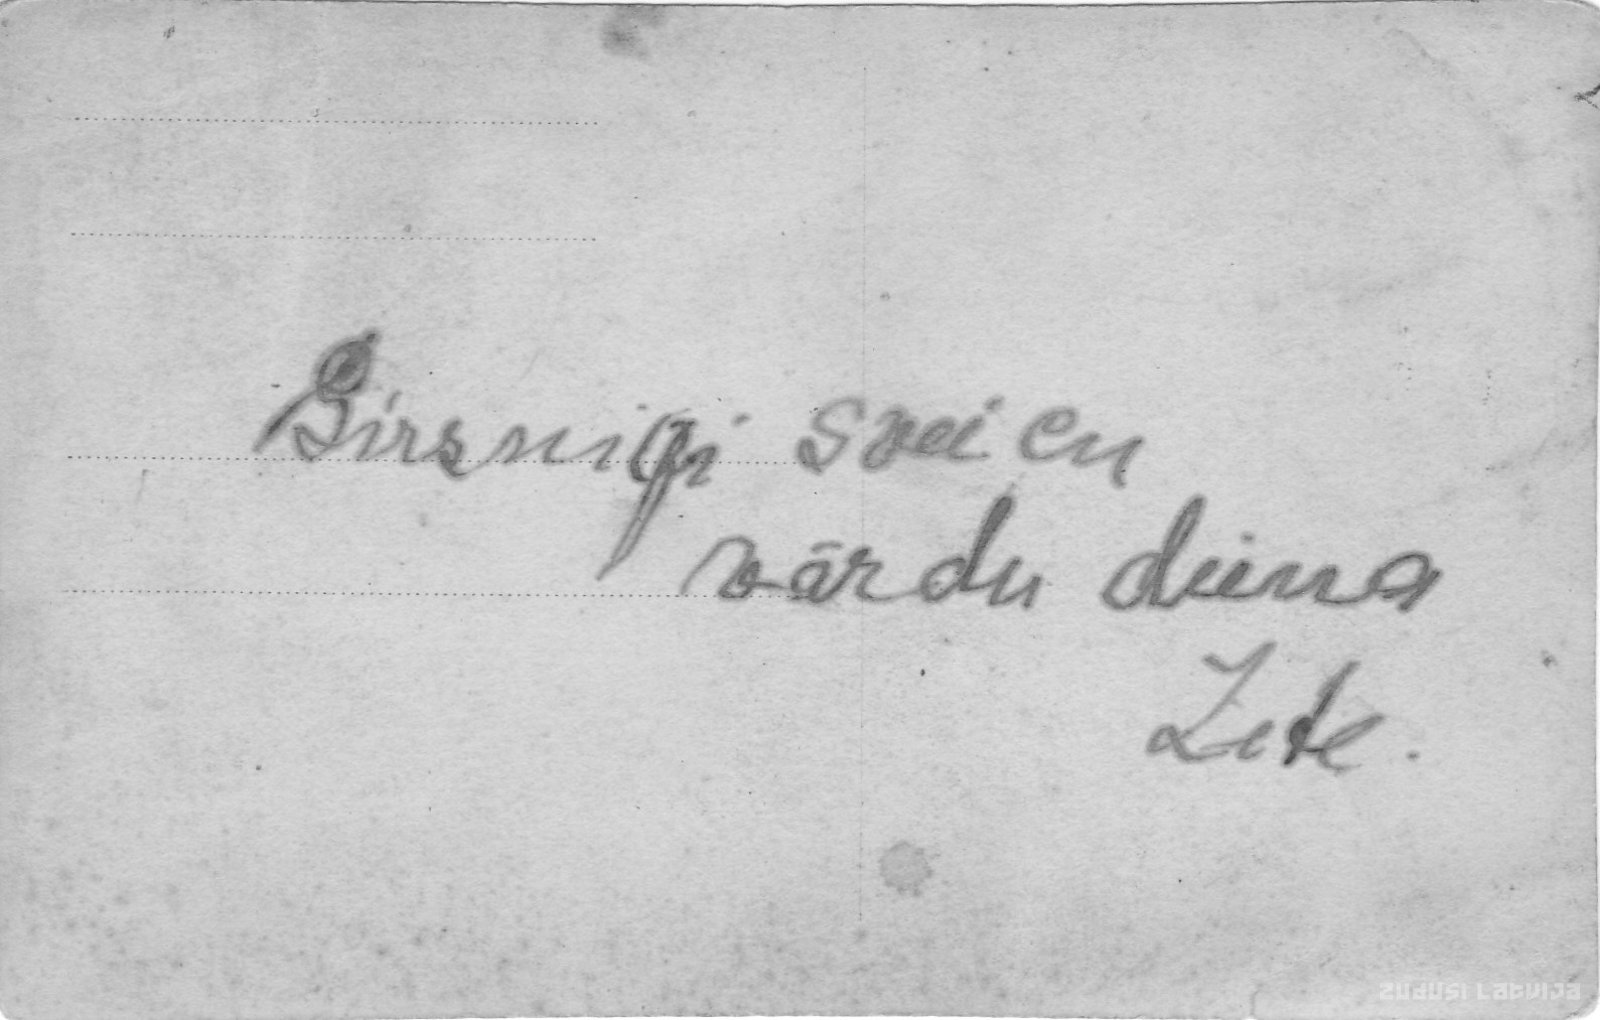 Sirsnigi sveicu
vārdu diena
Zete.
ZUDUSI LATVIJA